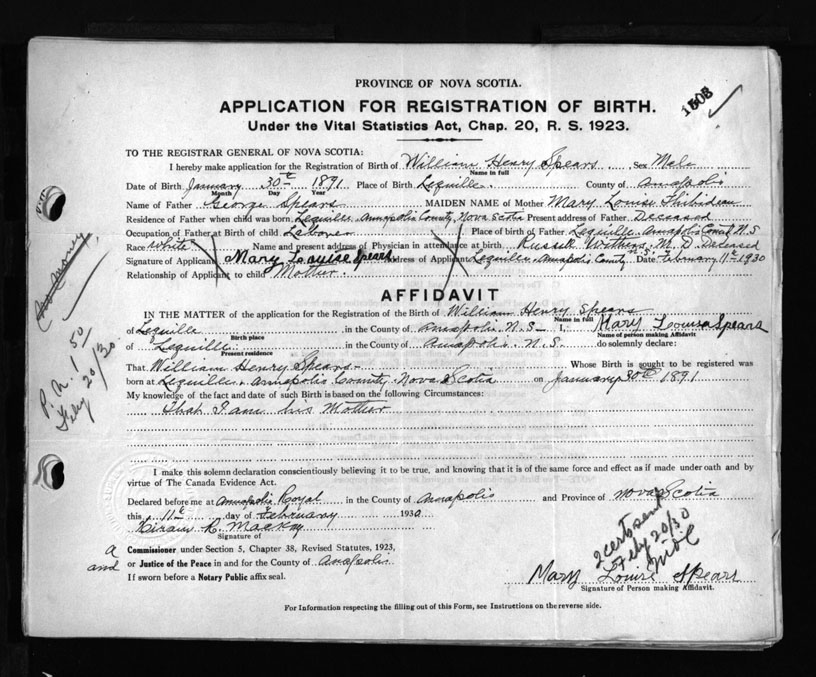 PROVINCE OF NOVA SCOTIA.
1505
APPLICATION FOR REGISTRATION OF BIRTH.
Under the Vital Statistics Act, Chap. 20, R. S. 1923.
TO THE REGISTRAR GENERAL OF NOVA SCOTIA:
I hereby make application for the Registration of Birth of William Henry Spears Sex Male
Name in full
Date of Birth January 30th 1891 Place of Birth Lequille. County of Annapolis
Month Day Year
Name of Father George Spears MAIDEN NAME of Mother Mary Louise Thibideau
Residence of Father when child was born Lequille, Annapolis County, Nova Scotia Present address of Father Deceased
Occupation of Father at Birth of child Laborer Place of birth of Father Lequille Annapolis County N S
Race White Name and present address of Physician in attendance at birth Russell Withers, M. D. Deceased
Signature of Applicant Mary Louise Spears Address of Applicant Lequille, Annapolis County N.S. Date February 11th 1930
Relationship of Applicant to child Mother.
AFFIDAVIT
IN THE MATTER of the application for the Registration of the Birth of William Henry Spears
Name in full
of Lequille in the County of Annapolis, N. S- I, Mary Louise Spears
Birth place Name of person making Affidavit
of Lequille in the County of Annapolis. N. S. do solemnly declare:
Present residence
That William Henry Spears- Whose Birth is sought to be registered was
born at Lequille, Annapolis County Nova Scotia on January 30th 1891
My knowledge of the fact and date of such Birth is based on the following Circumstances:
That I am his Mother
I make this solemn declaration conscientiously believing it to be true, and knowing that it is of the same force and effect as if made under oath and by
virtue of The Canada Evidence Act.
Declared before me at Annapolis Royal in the County of Annapolis and Province of Nova Scotia
this 11th day of February 1930
Hiram K. Mackay
Signature of
a Commissioner under Section 5, Chapter 38, Revised Statutes, 1923,
and or Justice of the Peace in and for the County of Annapolis
If sworn before a Notary Public affix seal.
2 certs sent
Feby 20/30
Mary Louise Spears
Signature of Person making Affidavit.
For Information respecting the filling out of this Form, see Instructions on the reverse side.
(no money)
P. N. 1 50
Feby 20/30